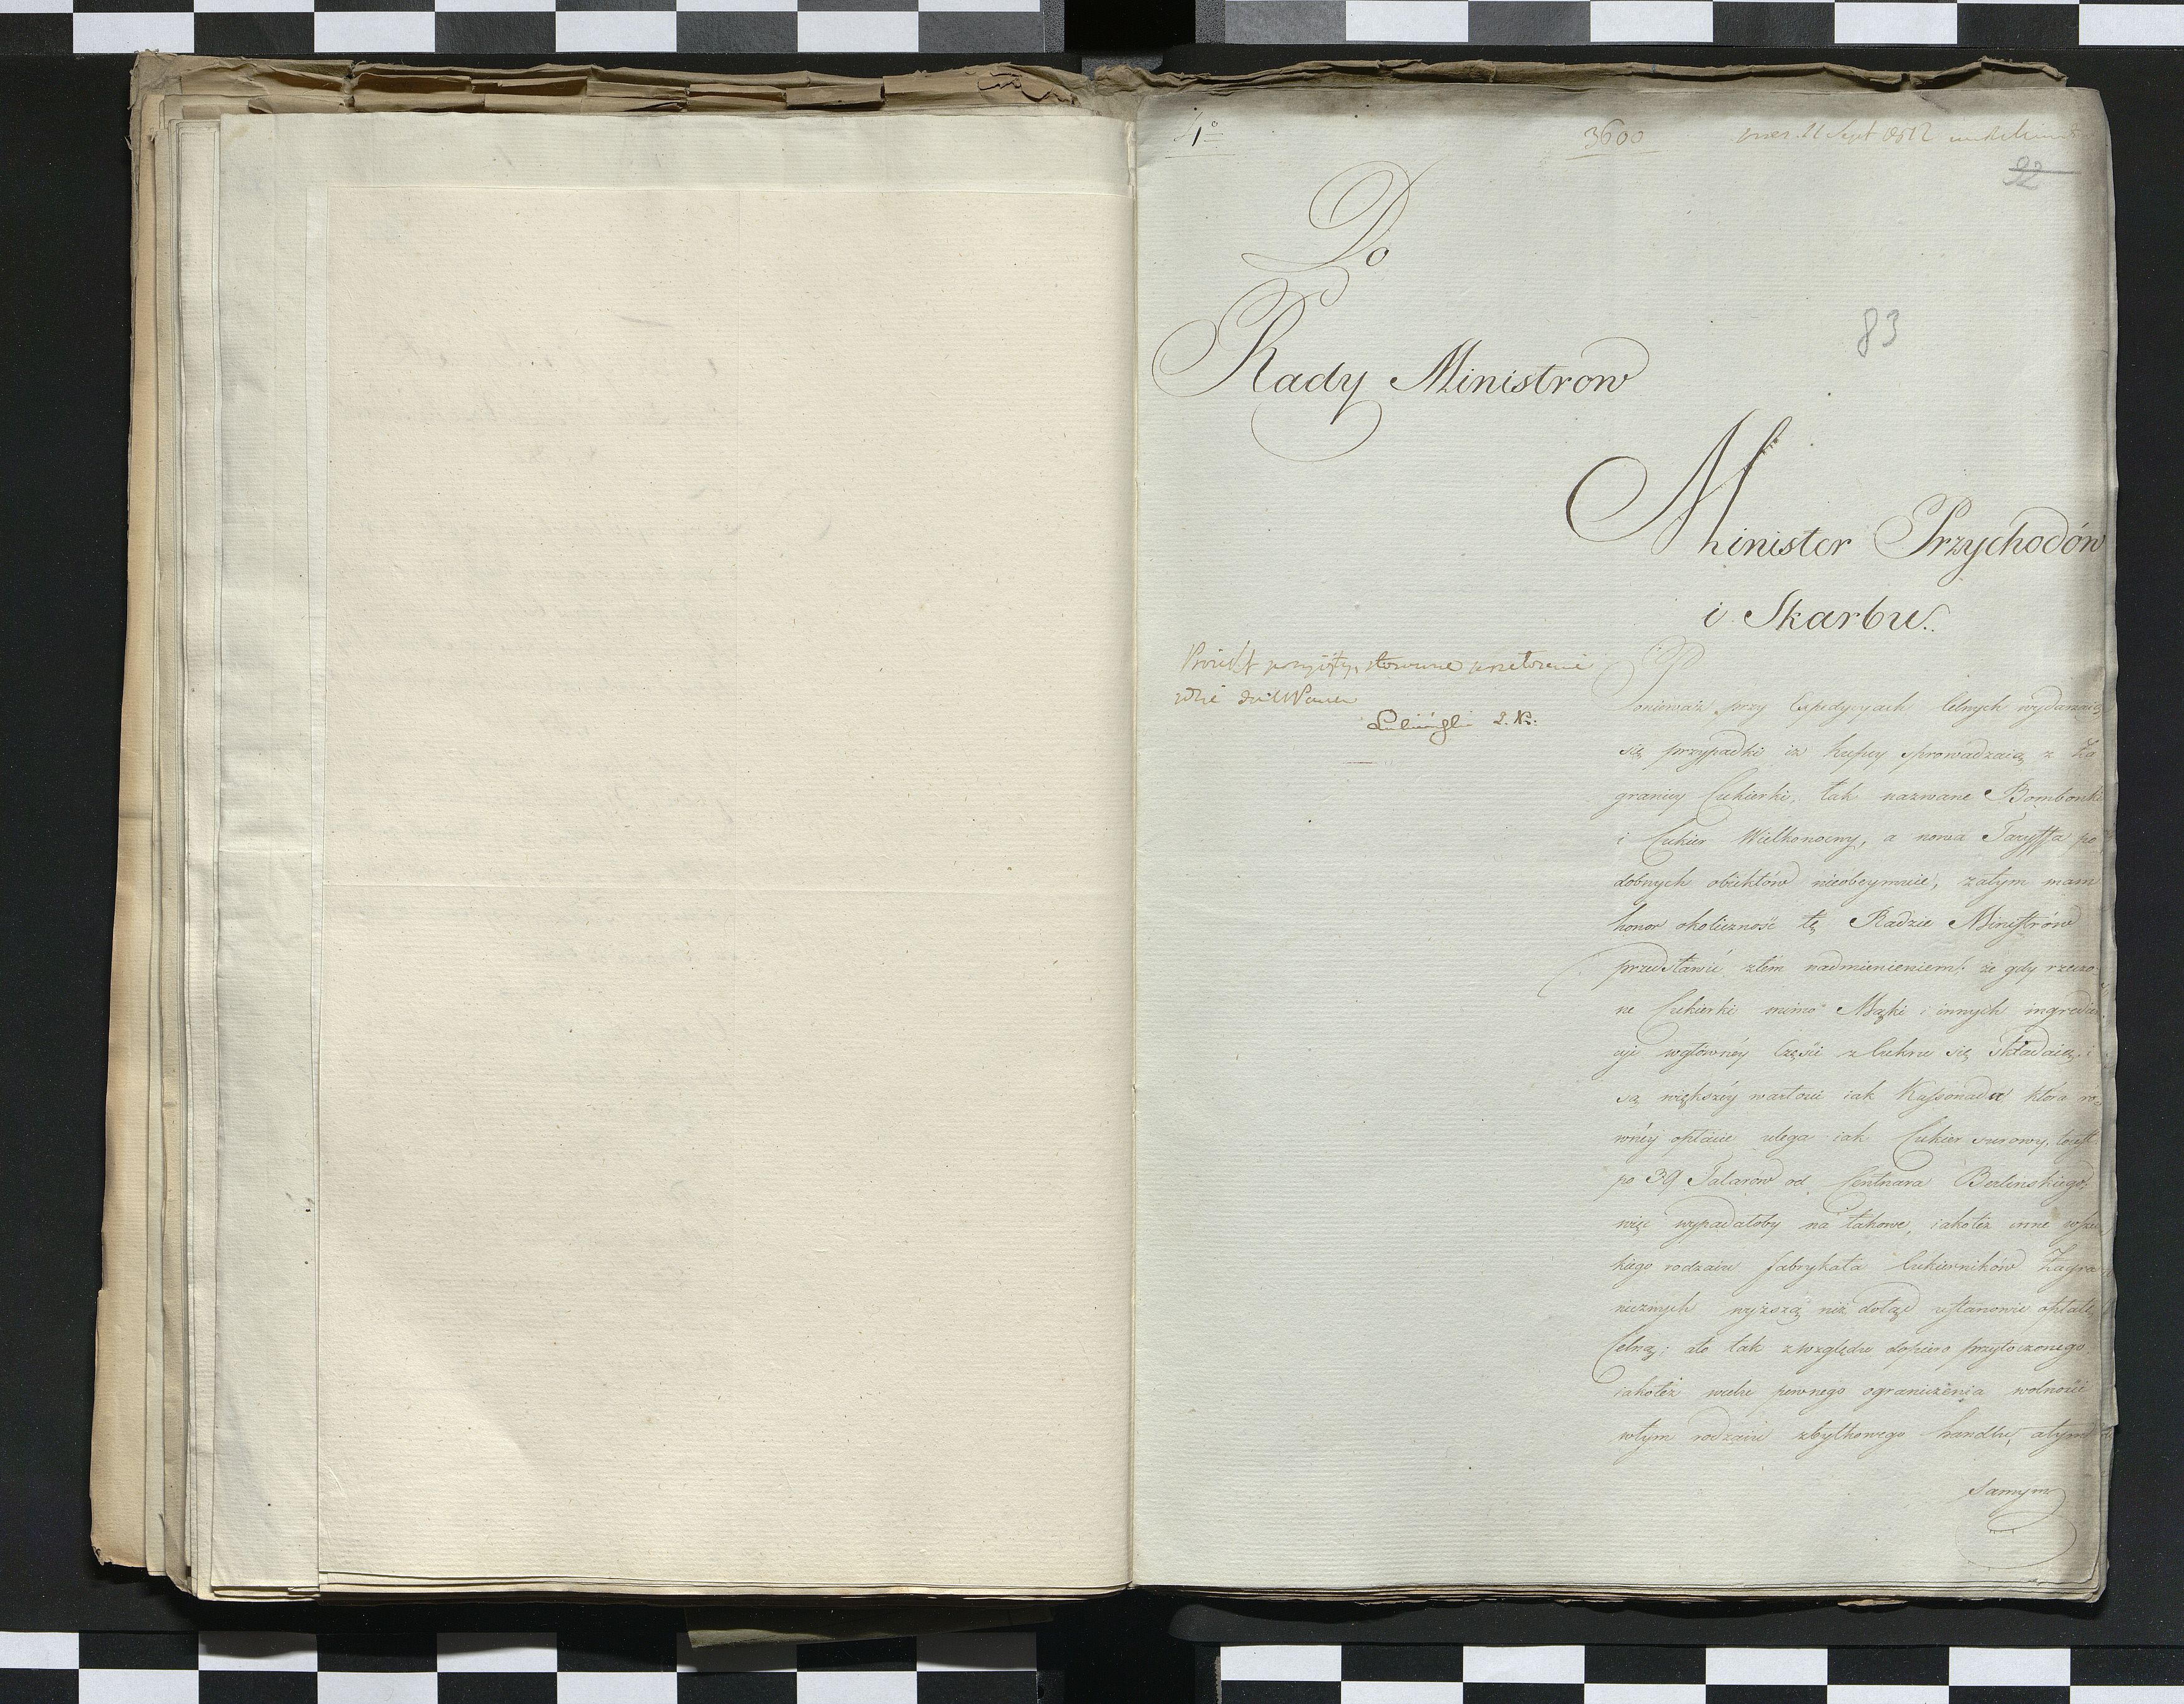 4o
3600
11 Sept 1812
92
83
Do
Rady Ministrow
Minister Przychodów
i Skarbu.
Proiekt przyięty, stosowne przełożenie
Lubiński
Ponieważ przy Expedycyach Celnych wydarzaią
się przypadki iż kupcy sprowadzaią z Za
granicy Cukierki, tak nazwane Bombonki
i Cukier Wielkonocny, a nowa Taryffa po
dobnych obiektów nieobeymuie, zatym mam
honor okoliczność tę Radzie Ministrów
przedstawić ztem nadmienieniem: że gdy rzeczo
ne Cukierki mimo Mąki i innych ingredien
cyi wgłównéy Części z Cukru się składaią i
są większéy wartości iak Kassonada która ró
wnéy opłacie ulega iak Cukier surowy, toiest
po 39 Talarów od Centnara Berlinskiego,
więc wypadałoby na takowe, iakoteż inne wszel
kiego rodzaiu fabrykata Cukierników Zagra
nicznych wyższą niż dotąd ustanowić opłatę
Celną; ato tak zwzględu dopiero przytoczonego,
iakoteż wcelu pewnego ograniczenia wolności
wtym rodzaiu zbytkowego handlu, atym
samym